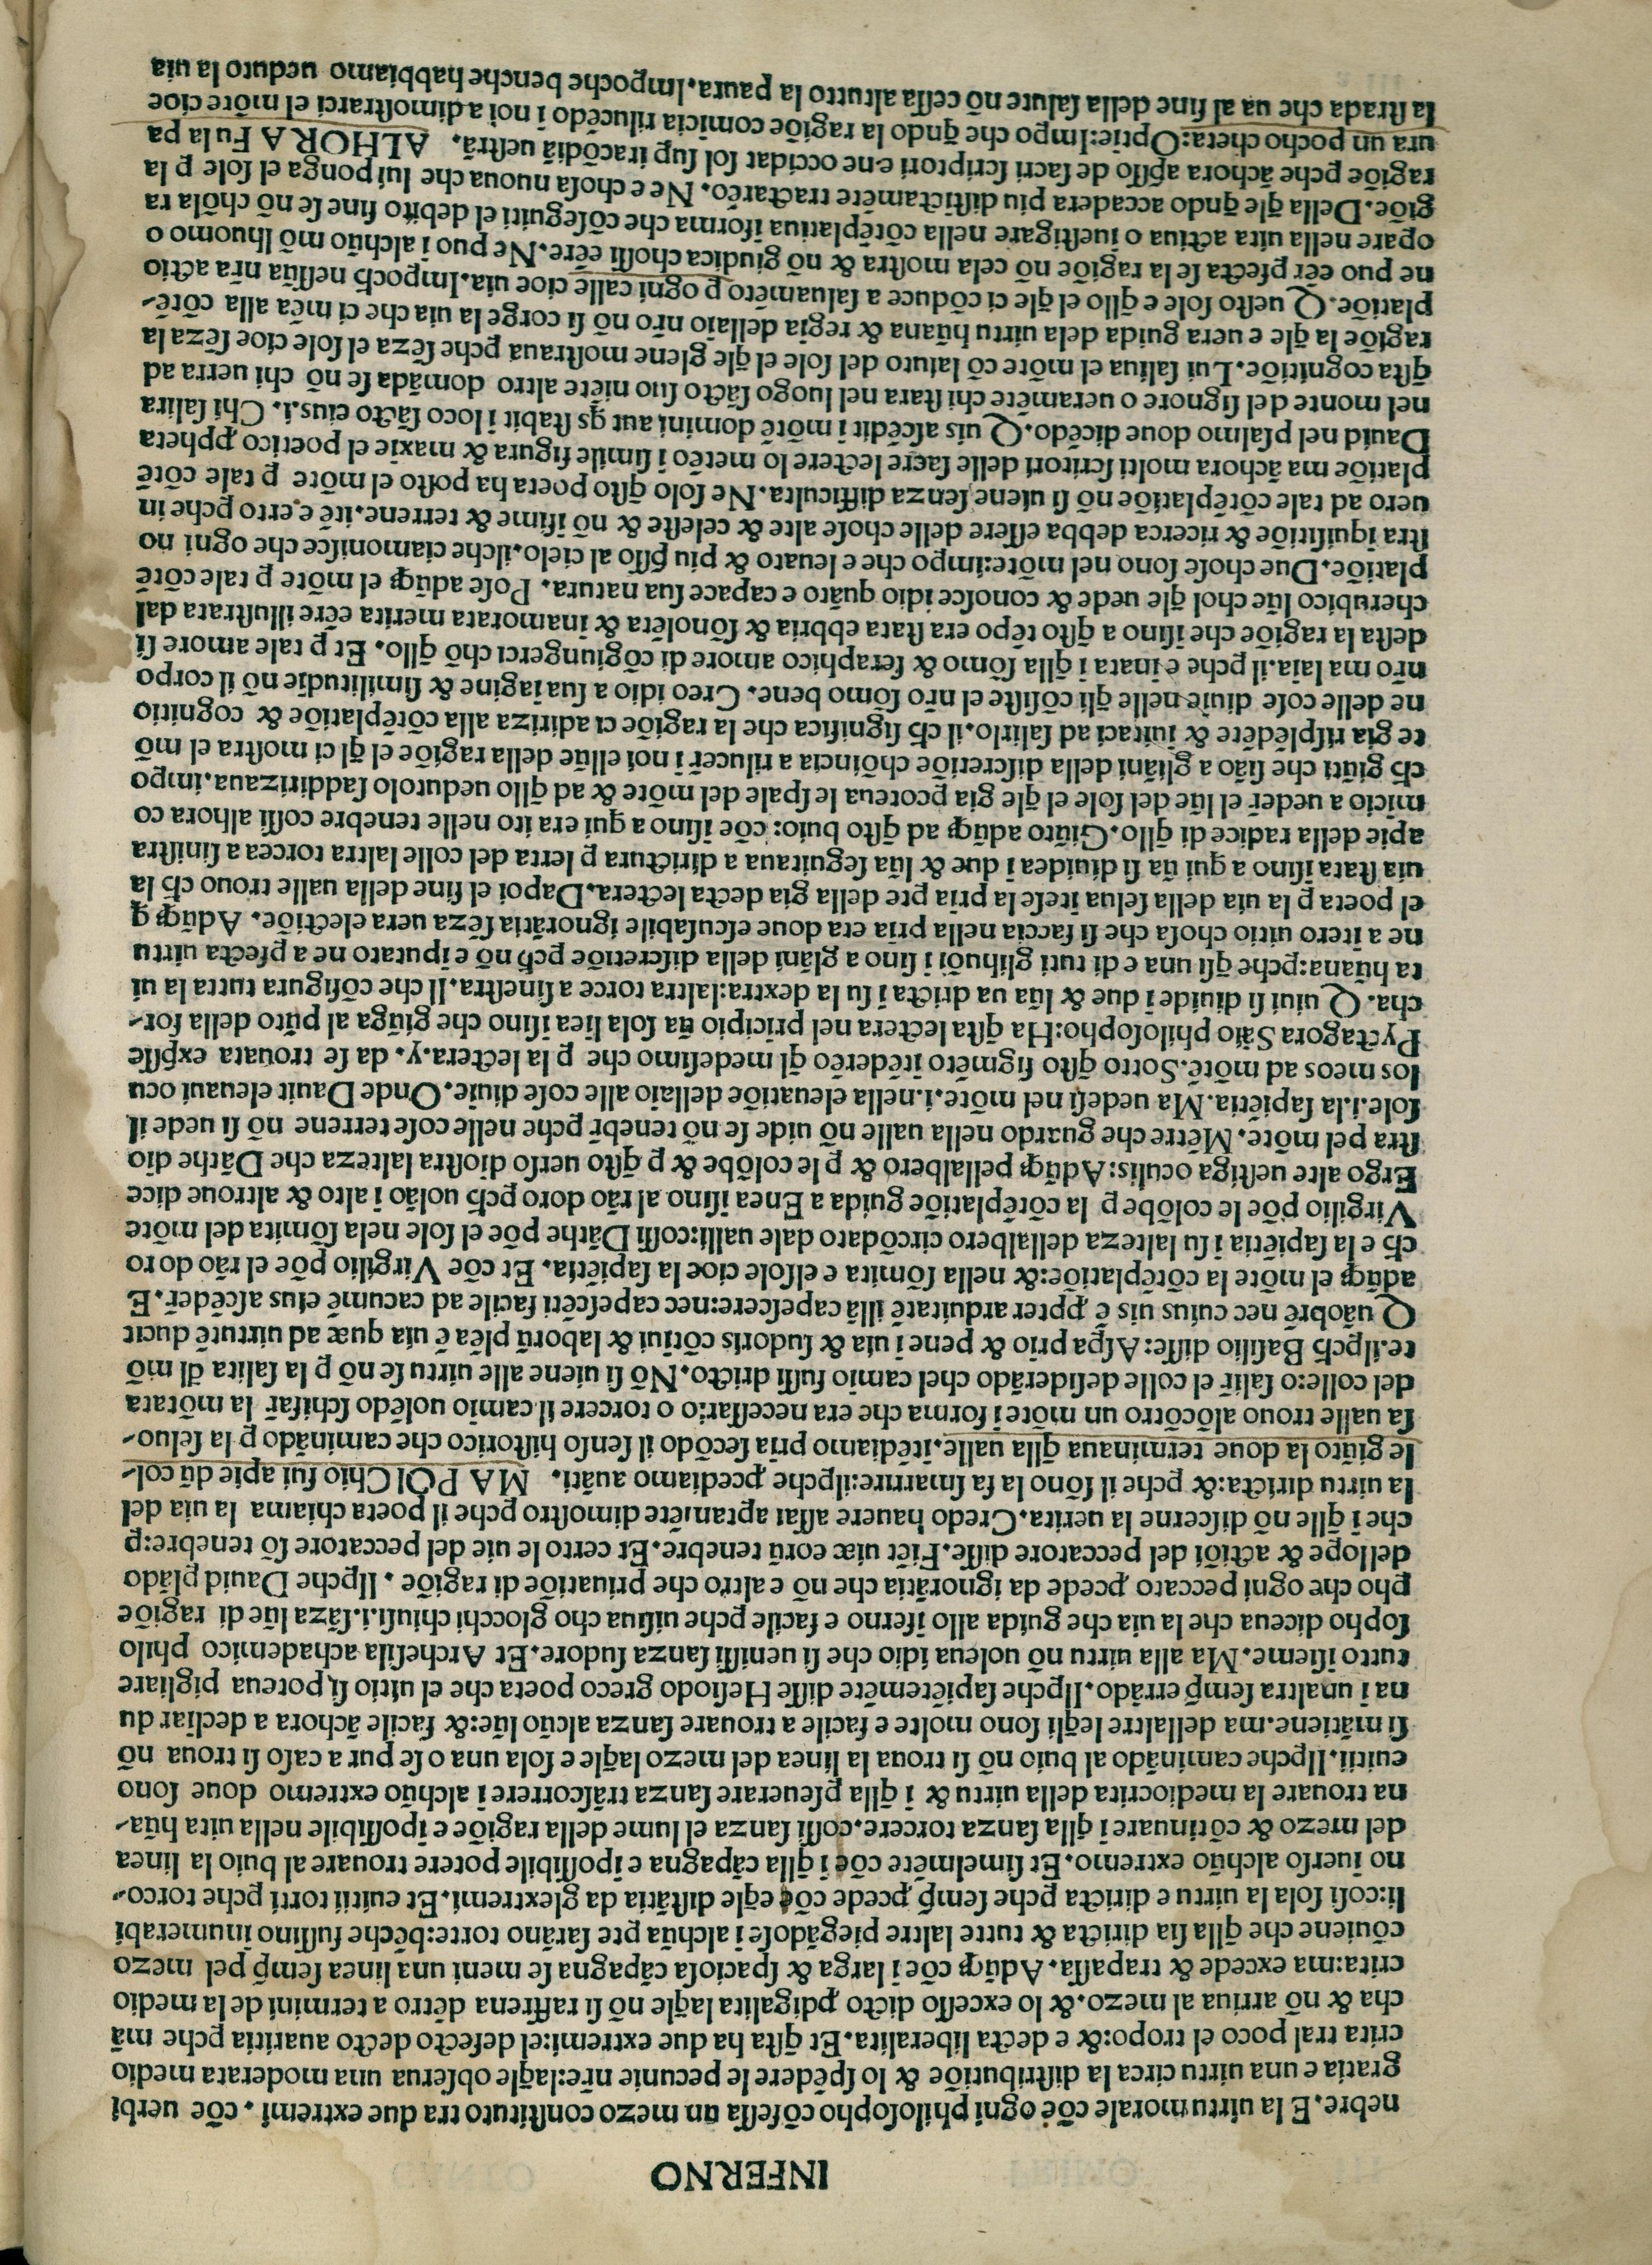 INFERNO
nebre. E la uirtu morale cõe ogni philosopho cõfessa un mezo constituto tra due extremi. cõe uerbi
gratia e una uirtu circa la distributiõe & lo spẽdere le pecunie nr̃e:laq̃le obserua una moderata medio
crita tral poco el tropo:& e decta liberalita. Et q̃sta ha due extremi:el defecto decto auaritia ꝑche mã
cha & nõ arriua al mezo. & lo excesso dicto ꝓdigalita laq̃le nõ si raffrena dẽtro a termini de la medio
crita:ma excede & trapassa. Adũqꝫ cõe i larga & spaciosa cãpagna se meni una linea semp̃ pel mezo
cõuiene che q̃lla sia diricta & tutte laltre piegãdose i alchũa ꝑte sarãno torte:bẽche fussino inumerabi
li:cosi sola la uirtu e diricta ꝑche semp̃ ꝓcede cõe eq̃le distãtia da glextremi. Et euitii torti ꝑche torco-
no iuerso alchũo extremo. Et simelmẽte cõe i q̃lla cãpagna e ipossibile potere trouare al buio la linea
del mezo & cõtinuare i q̃lla sanza torcere. cossi sanza el lume della ragiõe e ipossibile nella uita hũa-
na trouare la mediocrita della uirtu & i q̃lla ꝑseuerare sanza trãscorrere i alchũo extremo doue sono
euitii. Ilꝑche caminãdo al buio nõ si troua la linea del mezo laq̃le e sola una o se pur a caso si troua nõ
si mãtiene. ma dellaltre leq̃li sono molte e facile a trouare sanza alcũo lũe:& facile ãchora a decliar du
na i unaltra semp̃ errãdo. Ilꝑche sapiẽtemẽte disse Hesiodo greco poeta che el uitio si poteua pigliare
tutto isieme. Ma alla uirtu nõ uoleua idio che si uenissi sanza sudore. Et Archesila achademico philo
sopho diceua che la uia che guida allo iferno e facile ꝑche uisiua cho glocchi chiusi.i.sãza lũe di ragiõe
ꝑho che ogni peccato ꝓcede da ignorãtia che nõ e altro che priuatiõe di ragiõe. Ilꝑche Dauid plãdo
dellope & actiõi del peccatore disse. Fiẽt uiæ eorũ tenebre. Et certo le uie del peccatore sõ tenebre:ꝑ
che i q̃lle nõ discerne la uerita. Credo hauere assai aptamẽte dimostro ꝑche il poeta chiama la uia del
la uirtu diricta:& ꝑche il sõno la fa smarrire:ilꝑche ꝓcediamo auãti. MA POI Chio fui apie dũ col-
le giũto la doue terminaua q̃lla ualle. itẽdiamo pria secõdo il senso historico che caminãdo ꝑ la seluo-
sa ualle trouo alõcõtro un mõte i forma che era necessario o torcere il camio uolẽdo schifar̃ la mõtata
del colle:o salir̃ el colle desiderãdo chel camio fussi dricto. Nõ si uiene alle uirtu se nõ ꝑ la salita dl mõ
te. ilꝑch̃ Basilio disse: Aspa prio & pene i uia & sudoris cõtiui & laborũ plẽa ẽ uia quæ ad uirtutẽ ducit
Quãobrẽ nec cuius uis ẽ ꝓpter arduitatẽ illã capescere:nec capescẽti facile ad cacumẽ eius ascẽder̃. E
adũqꝫ el mõte la cõtẽplatiõe:& nella sõmita e elsole cioe la sapiẽtia. Et cõe Virgilio põe el rão do ro
ch̃ e la sapiẽtia i su lalteza dellalbero circõdato dale ualli:cossi Dãthe põe el sole nela sõmita del mõte
Virgilio põe le colõbe ꝑ la cõtẽplatiõe guida a Enea ifino al rão doro ꝑch̃ uolão i alto & altroue dice
Ergo alte uestiga oculis: Adũqꝫ pellalbero & ꝑ le colõbe & ꝑ q̃sto uerso diostra lalteza che Dãthe dio
stra pel mõte. Mẽtre che guardo nella ualle nõ uide se nõ tenebr̃ ꝑche nelle cose terrene nõ si uede il
sole.i.la sapiẽtia. Ma uedesi nel mõte.i.nella eleuatiõe dellaio alle cose diuie. Onde Dauit eleuaui ocu
los meos ad mõtẽ. Sotto q̃sto figmẽto itẽderẽo q̃l medesimo che ꝑ la lectera.y. da se trouata exp̃sse
Pyctagora Sãio philosopho:Ha q̃sta lectera nel pricipio ũa sola liea ifino che giũga al pũto della for-
cha. Q uiui si diuide i due & lũa ua dricta i su la dextra:laltra torce a sinestra. Il che cõfigura tutta la ui
ta hũana:ꝑche q̃si una e di tuti glihuõi i fino a glãni della discretiõe ꝑch̃ nõ e iputato ne a ꝑfecta uirtu
ne a itero uitio chosa che si faccia nella pria eta doue escusabile ignorãtia sẽza uera electiõe. Adũqꝫ q̃
el poeta ꝑ la uia della selua itese la pria ꝑte della gia decta lectera. Dapoi el fine della ualle trouo ch̃ la
uia stata ifino a qui ũa si diuidea i due & lũa seguitaua a dirictura ꝑ lerta del colle laltra torcea a sinistra
apie della radice di q̃llo. Giũto adũqꝫ ad q̃sto buio: cõe ifino a qui era ito nelle tenebre cossi alhora co
micio a ueder̃ el lũe del sole el q̃le gia ꝑcoteua le spale del mõte & ad q̃llo uedutolo saddirizaua. impo
ch̃ giũti che sião a gliãni della discretiõe chõincia a rilucer̃ i noi ellũe della ragiõe el q̃l ci mostra el mõ
te gia risplẽdẽte & iuitaci ad salirlo. il ch̃ significa che la ragiõe ci adiriza alla cõtẽplatiõe & cognitio
ne delle cose diuie nelle q̃li cõsiste el nr̃o sõmo bene. Creo idio a sua iagine & similitudie nõ il corpo
nr̃o ma laia. il ꝑche e inata i q̃lla sõmo & seraphico amore di cõgiungerci chõ q̃llo. Et ꝑ tale amore si
desta la ragiõe che ifino a q̃sto tẽpo era stata ebbria & sõnolẽta & inamorata merita eẽre illustrata dal
cherubico lũe chol q̃le uede & conosce idio quãto e capace sua natura. Pose adũqꝫ el mõte ꝑ tale cõtẽ
platiõe. Due chose sono nel mõte:impo che e leuato & piu p̃sso al cielo. ilche ciamonisce che ogni no
stra iquisitiõe & ricerca debba essere delle chose alte & celeste & nõ ifime & terrene. itẽ e certo ꝑche in
uero ad tale cõtẽplatiõe nõ si uiene senza difficulta. Ne solo q̃sto poeta ha posto el mõte ꝑ tale cõtẽ
platiõe ma ãchora molti scritori delle sacre lectere lo metẽo i simile figura & maxie el poetico ꝓpheta
Dauid nel psalmo doue dicẽdo. Q uis ascẽdit i mõtẽ domini aut q̃s stabit i loco sãcto eius.i. Chi salira
nel monte del signore o ueramẽte chi stara nel luogo sãcto suo niẽte altro domãda se nõ chi uerra ad
q̃sta cognitiõe. Lui saliua el mõte cõ laiuto del sole el q̃le glene mostraua ꝑche sẽza el sole cioe sẽza la
ragiõe la q̃le e uera guida dela uirtu hũana & regia dellaio nr̃o nõ si corge la uia che ci mẽa alla cõtẽ-
platiõe. Q uesto sole e q̃llo el q̃le ci cõduce a saluamẽto ꝑ ogni calle cioe uia. Impoch̃ nessũa nr̃a actio
ne puo eẽr ꝑfecta se la ragiõe nõ cela mostra & nõ giudica chossi eẽre. Ne puo i alchũo mõ lhuomo o
opare nella uita actiua o iuestigare nella cõtẽplatiua iforma che cõseguiti el debito fine se nõ chõla ra
giõe. Della q̃le q̃ndo accadera piu distictamẽte tractarẽo. Ne e chosa nuoua che lui ponga el sole ꝑ la
ragiõe ꝑche ãchora ap̃sso de sacri scriptori e ne occidat sol sup̃ iracõdiã uestrã. ALHORA Fu la pa
ura un pocho cheta: Optie: Impo che q̃ndo la ragiõe comicia rilucẽdo i noi a dimostrarci el mõte cioe
la strada che ua al fine della salute nõ cessa altutto la paura. Impoche benche habbiamo ueduto la uia